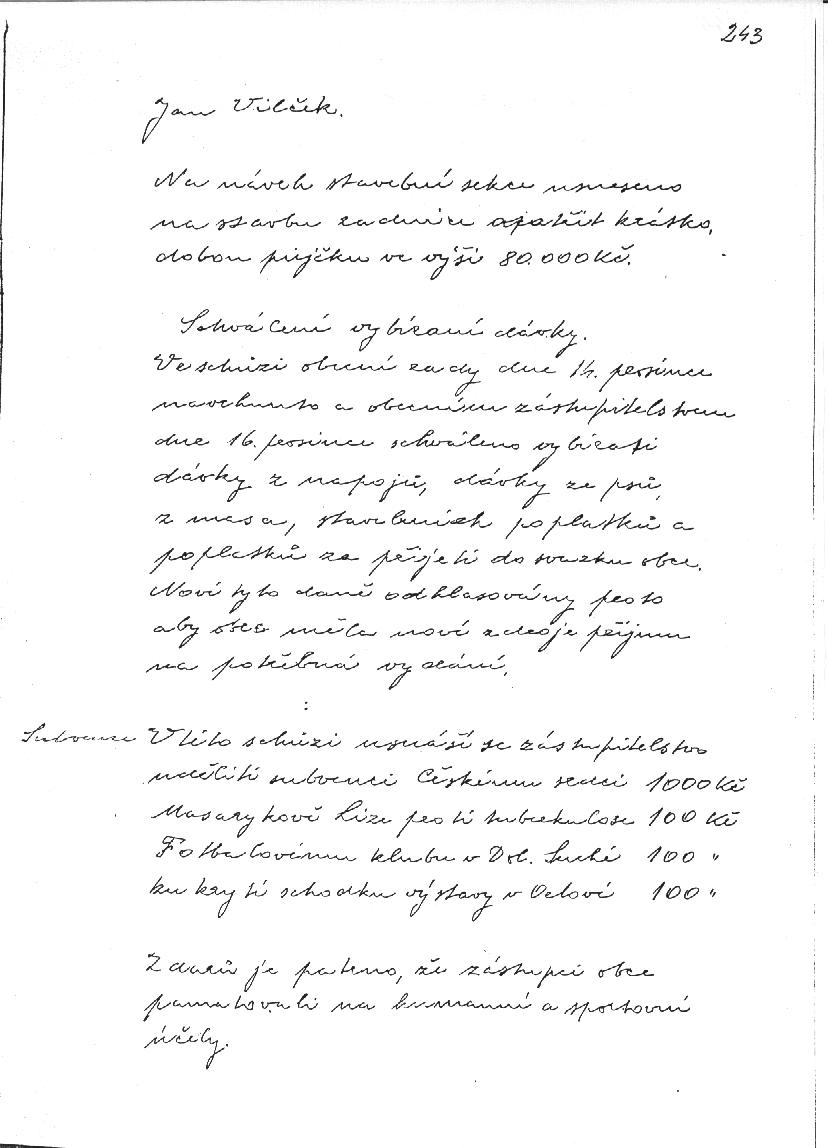 243
Jan Vilček.
Na návrh stavební sekce usneseno
na stavbu radnice opatřit krátko,
dobou půjčku ve výši 80.000 Kč.
Schválení vybírání dávky.
Ve schůzi obecní rady dne 14. prosince
navrhnuto a obecním zastupitelstvem
dne 16. prosince schváleno vybírati
dávky z nápojů, dávky ze psů,
z masa, stavebních poplatků a
poplatků za přijetí do svazku obce.
Nové tyto daně odhlasovány proto
aby obec měla nové zdroje příjmu
na potřebná vydání.
Subvence V této schůzi usnáší se zástupitelstvo
uděliti subvenci Českému srdci 1000 Kč
Masarykově Lize proti tuberkulose 100 Kč
Fotbalovému klubu v Dol. Suché 100 "
ku krytí schodku výstavy v Orlové 100 "
Z darů je patrno, že zástupci obce
pamatovali na humanní a sportovní
účely.